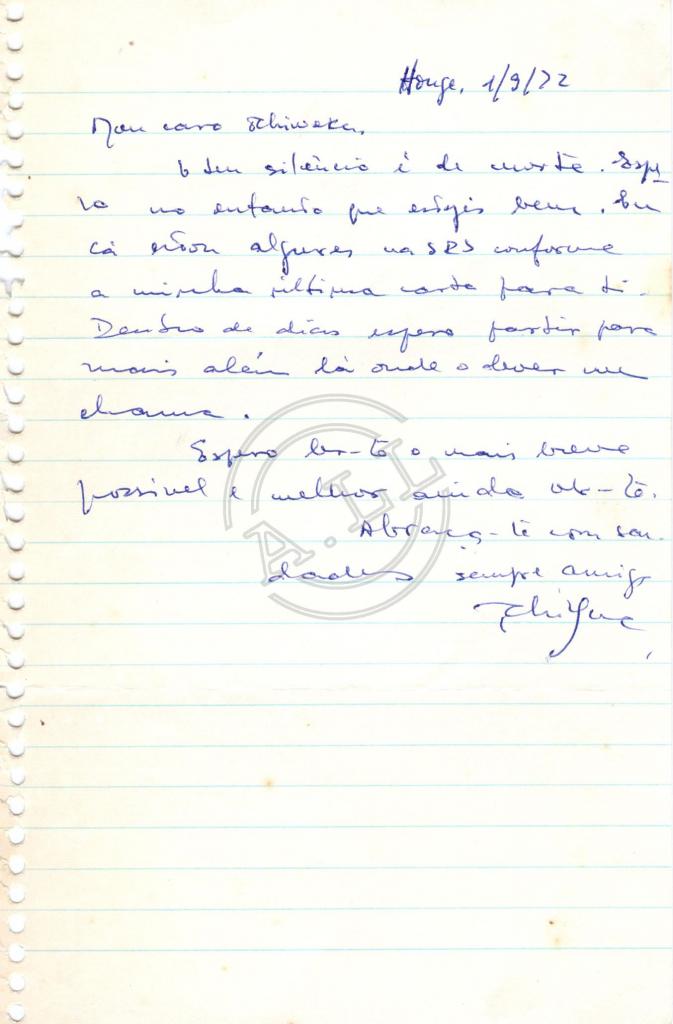 Honge, 1/9/72
Meu caro Tchiweka,
O teu silêncio é de morte. Espe
ro no entanto que estejas bem. Eu
cá estou algures na SRS conforme
a minha última carta para ti.
Dentro de dias espero partir para
mais além lá onde o dever me
chama.
Espero ler-te o mais breve
possível e melhor ainda ver-te.
Abraça-te com sau-
dades sempre amigo
A.LL